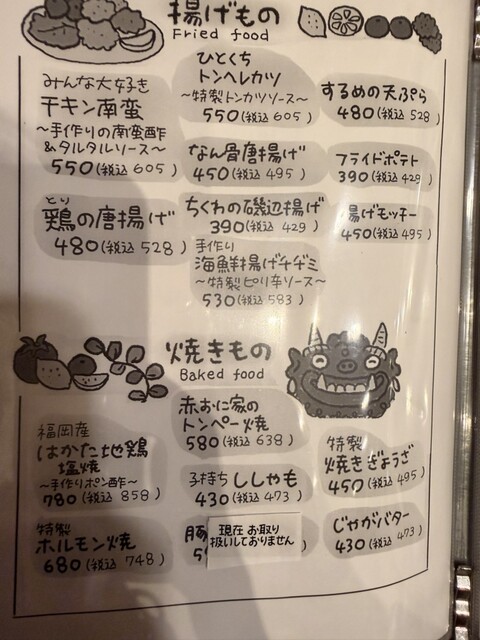 揚げもの
Fried food
みんな大好き
チキン南蛮
～手作りの南蛮酢
&タルタルソース～
550(税込 605)
とり
鶏の唐揚げ
480(税込 528)
ひとくち
トンヘレカツ
～特製トンカツソース～
550(税込 605)
なん骨唐揚げ
450(税込 495)
ちくわの磯辺揚げ
390(税込 429)
手作り
海鮮揚げチヂミ
～特製ピリ辛ソース～
530(税込 583)
するめの天ぷら
480(税込 528)
フライドポテト
390(税込 429)
揚げモッチー
450(税込 495)
焼きもの
Baked food
福岡産
はかた地鶏
塩焼
～手作りポン酢～
780(税込 858)
特製
ホルモン焼
680(税込 748)
赤おに家の
トンペー焼
580(税込 638)
子持ちししゃも
430(税込 473)
豚
5
現在 お取り
扱いしておりません
)
特製
焼きぎょうざ
450(税込 495)
じゃがバター
430(税込 473)